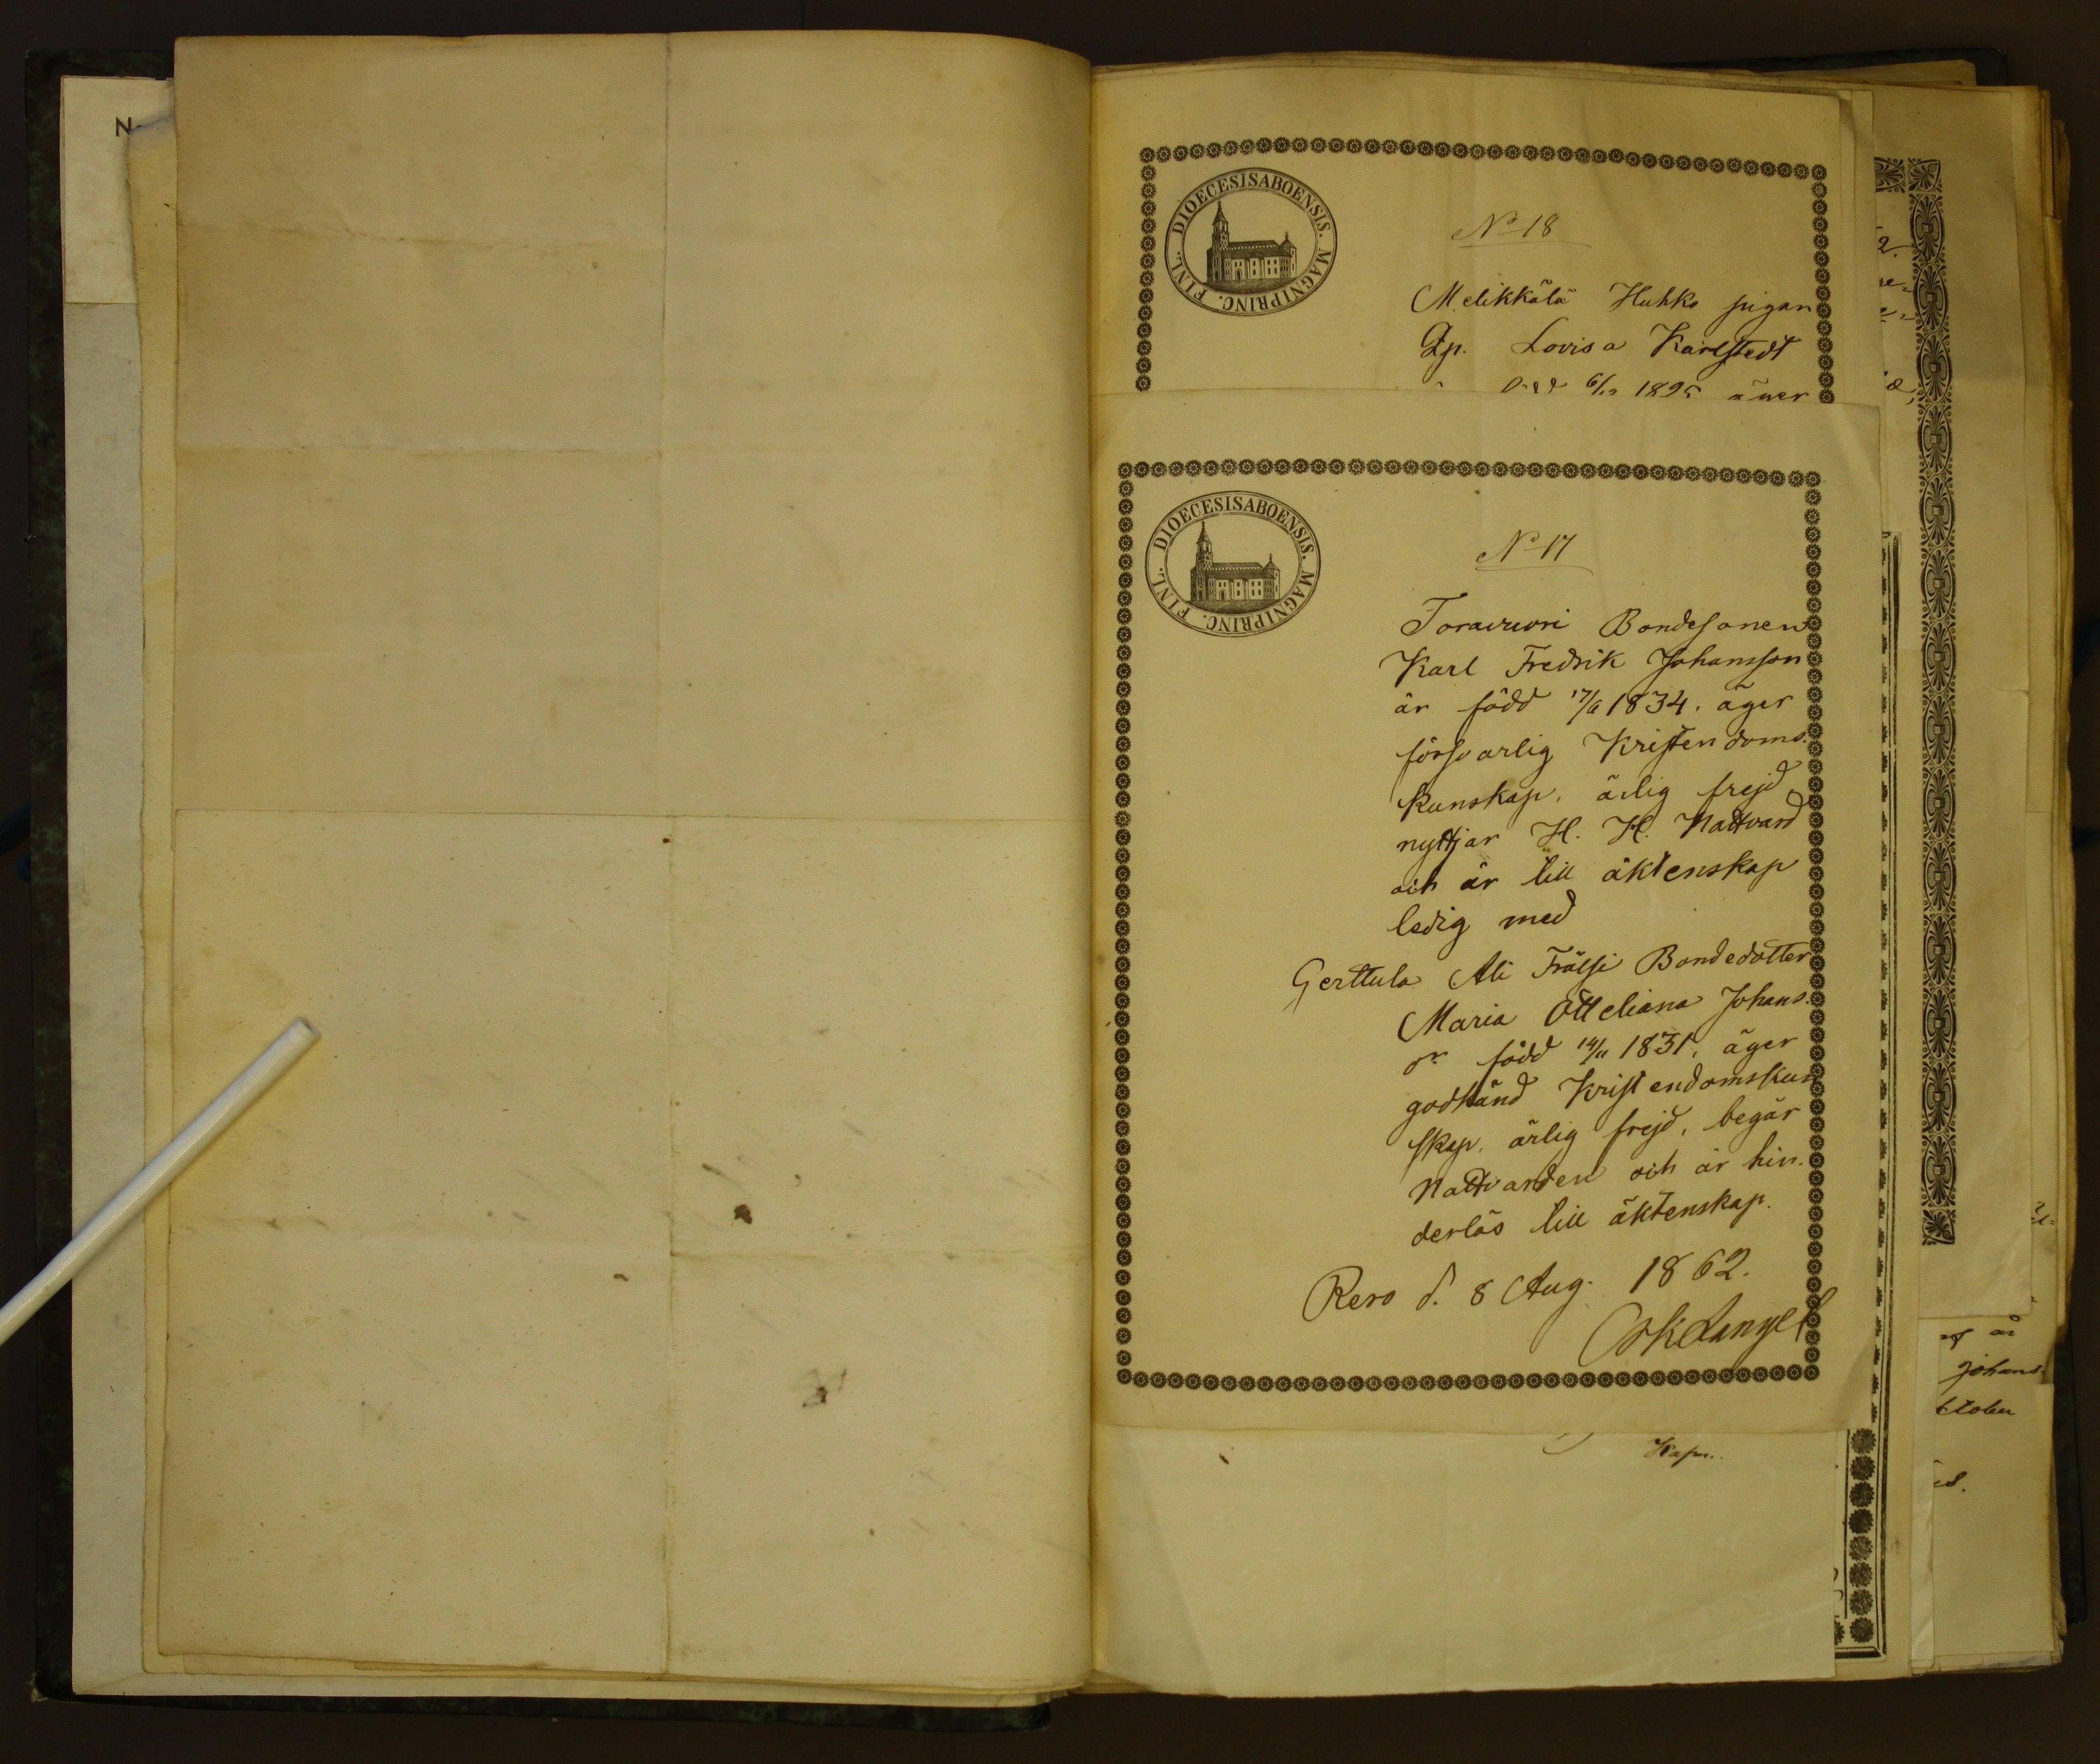 N
DIOECESIS ABOENSIS. MAGNI PRINC. FINL.
No 18
Melikkälä Huhko pigan
Lovisa Karlstedt
äger
DIOECESIS ABOENSIS. MAGNI PRINC. FINL.
No 17
Toravuori Bondesonen
Karl Fredrik Johansson
är född 17/6 1834. äger
försvarlig Kristendoms-
kunskap, ärlig frejd
nyttjar H. H. Nattvard
och är till äktenskap
ledig med
Gerttula Ali Frälsi Bondedotter
Maria Otteliana Johans-
dr född 14/11 1831, äger
godkänd Kristendomskun
skap, ärlig frejd, begär
Nattvarden och är hin-
derlös till äktenskap.
Reso d. 8 Aug. 1862.
Kapn.
är
Johans
ctober